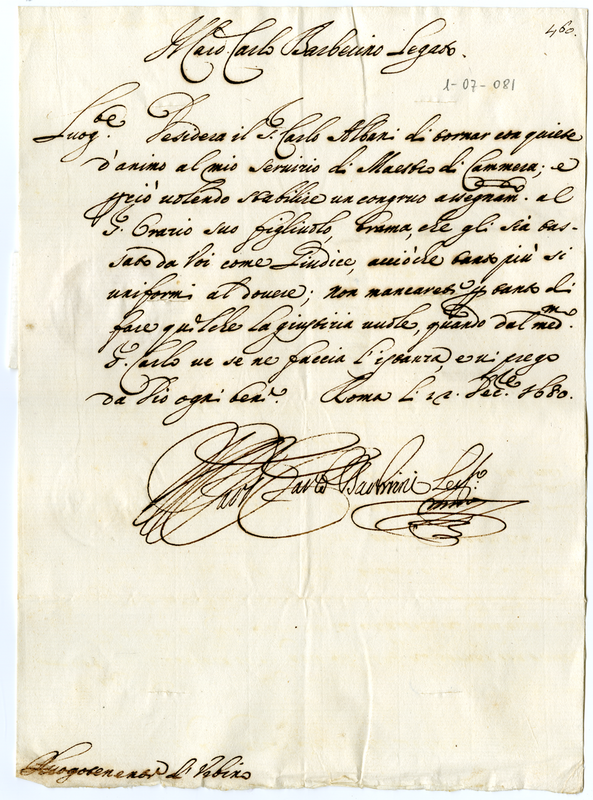 460.
Il Card. Carlo Barberino Legato.
1-07-081
Luog.te Desidera il S. Carlo Albani di tornar con quiete
d'animo al mio servizio di Maestro di Cammera; e
perciò volendo stabilire un congruo assegnam.to al
S. Orazio suo figliuolo, brama, che gli sia tas-
sato da Voi come Giudice, acciòche tanto più si
uniformi al dovere; Non mancarete p. tanto di
fare quelche la giustizia vuole, quando dal med.mo
S. Carlo ve se ne faccia l'istanza, e vi prego
da Dio ogni bene. Roma li 21. Dec.bre 1680.
Il Card. Carlo Barberini Leg.to
Luogotenente d'Urbino